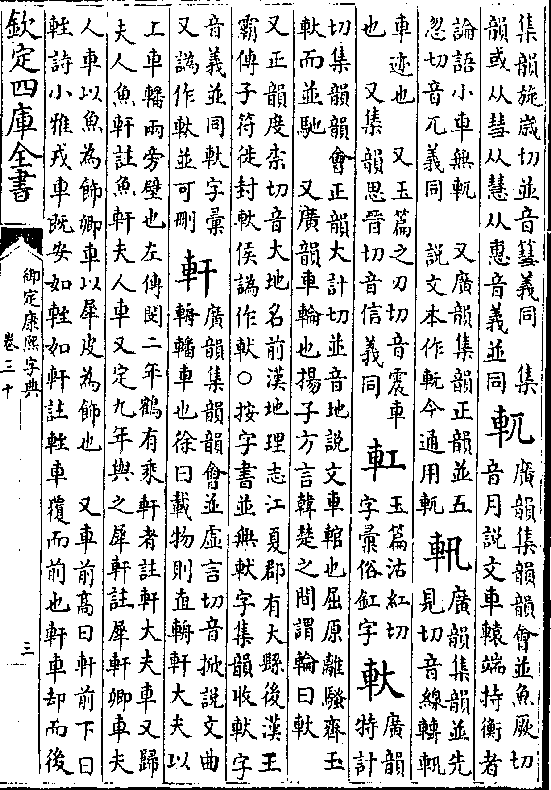 集韻旋歲切並音篲義同　集
韻或从彗从慧从惠音義並同
軏
廣韻集韻韻會並魚厥切
音月說文車轅端持衡者
論語小車無軏　又廣韻集韻正韻並五
忽切音兀義同　說文本作軏今通用軏
軐
廣韻集韻並先
見切音線轉軐
車迹也　又玉篇之刃切音震車
也　又集韻思晉切音信義同
𨊧
玉篇沽紅切
字彙俗釭字
軑
廣韻
特計
切集韻韻會正韻大計切並音地說文車輨也屈原離騷齊玉
軑而並馳　又廣韻車輪也揚子方言韓楚之間謂輪曰軑
又正韻度柰切音大地名前漢地理志江夏郡有大縣後漢王
霸傳子符徙封軑侯譌作軑○按字書並無軑字集韻收軑字
音義並同軑字彙
又譌作軑並可刪
軒
廣韻集韻韻會並虛言切音掀說文曲
輈轓車也徐曰載物則直輈軒大夫以
上車轓兩旁壁也左傳閔二年鶴有乘軒者註軒大夫車又歸
夫人魚軒註魚軒夫人車又定九年與之犀軒註犀軒卿車夫
人車以魚為飾卿車以犀皮為飾也　又車前高曰軒前下曰
輊詩小雅戎車既安如輊如軒註輊車覆而前也軒車却而後
欽定四庫全書
御定康熙字典
卷三十
三